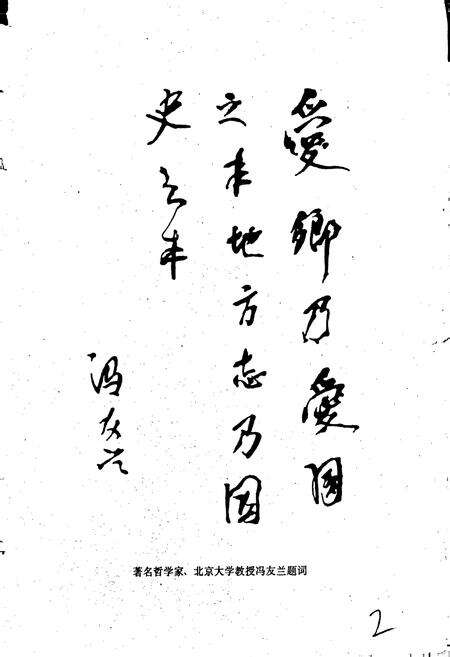 愛鄉乃愛国
之本地方志乃国
史之本
冯友兰
著名哲学家、北京大学教授冯友兰题词
2